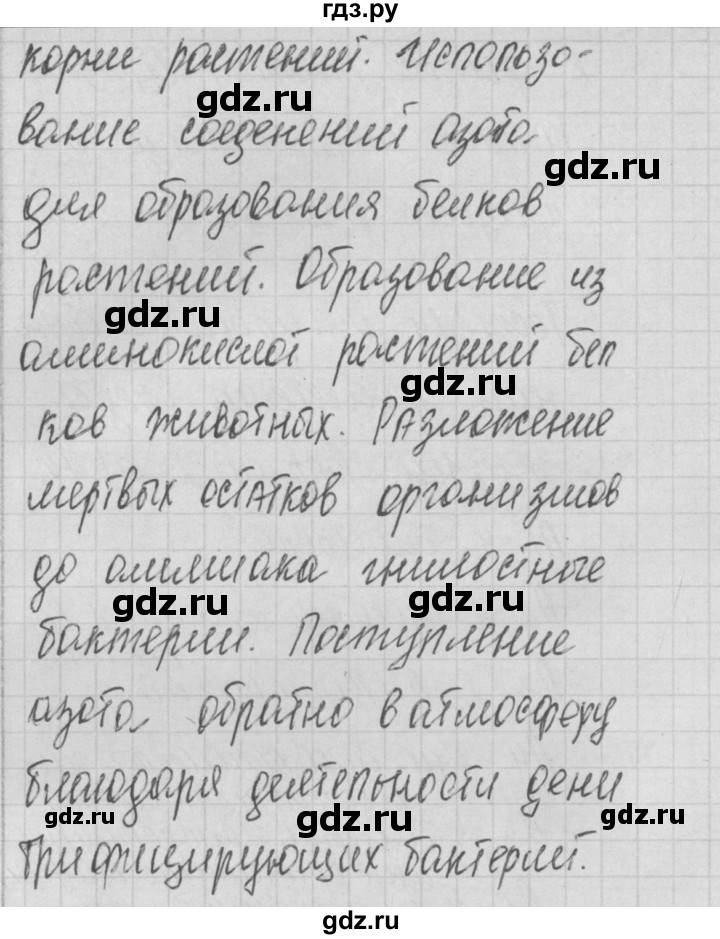 гдз.ру
корни растений. Использо-
gdz.ru
вание соеденений азота
gdz.ru
для образования белков
растений. Образование из
gdz.ru
аминокислот растений бел
gdz.ru
ков животных. Разложение
мертвых остатков организмов
до аммиака гнилостные
gdz.ru gdz.ru
бактерии. Поступление
азота обратно в атмосферу
благодаря деятельности дени
gdz.ru gdz.ru gdz.ru
трифицирующих бактерий.
gdz.ru